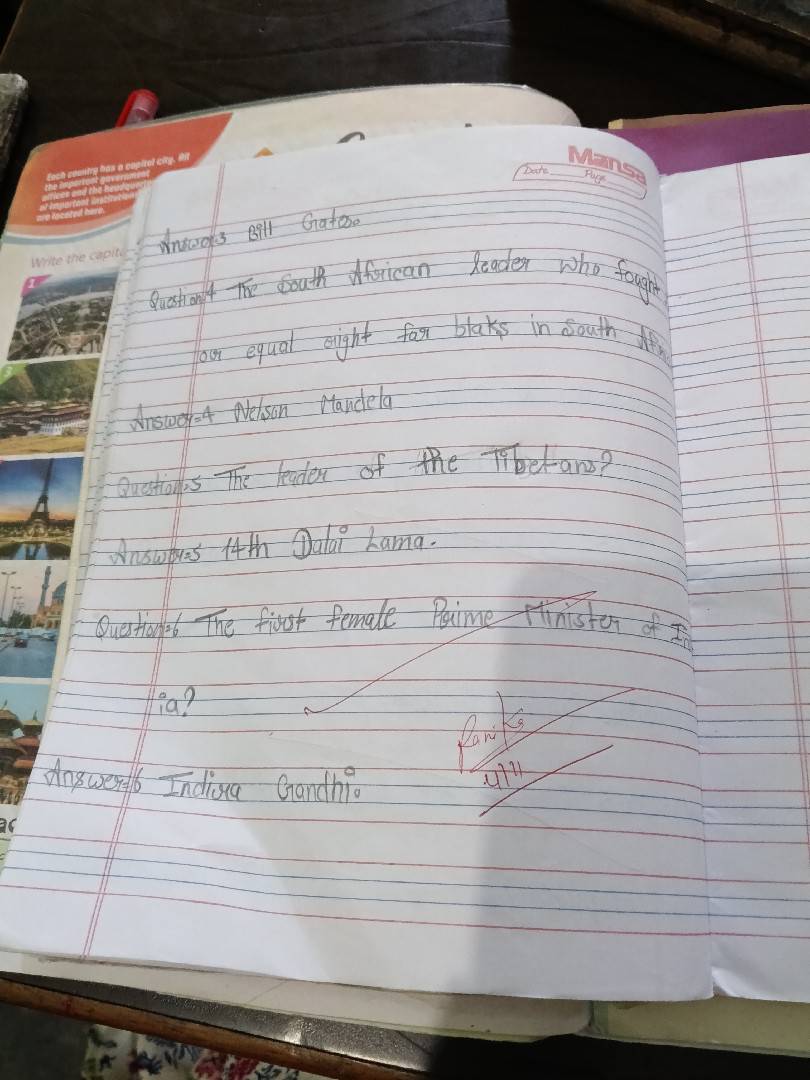 Each country has a capital city. All
the important government
offices and the headquarters
of important institutions
are located here.
Write the capit
1
Mansa
Date Page
Answer=3 Bill Gates.
Question=4 The South African leader who fought
our equal right far blaks in South Afri
Answer=4 Nelson Mandela
Question=5 The leader of the Tibetans?
Answer=5 14th Dalai Lama.
Question=6 The first female Prime Minister of In
ia?
Answer=6 Indira Gandhi.